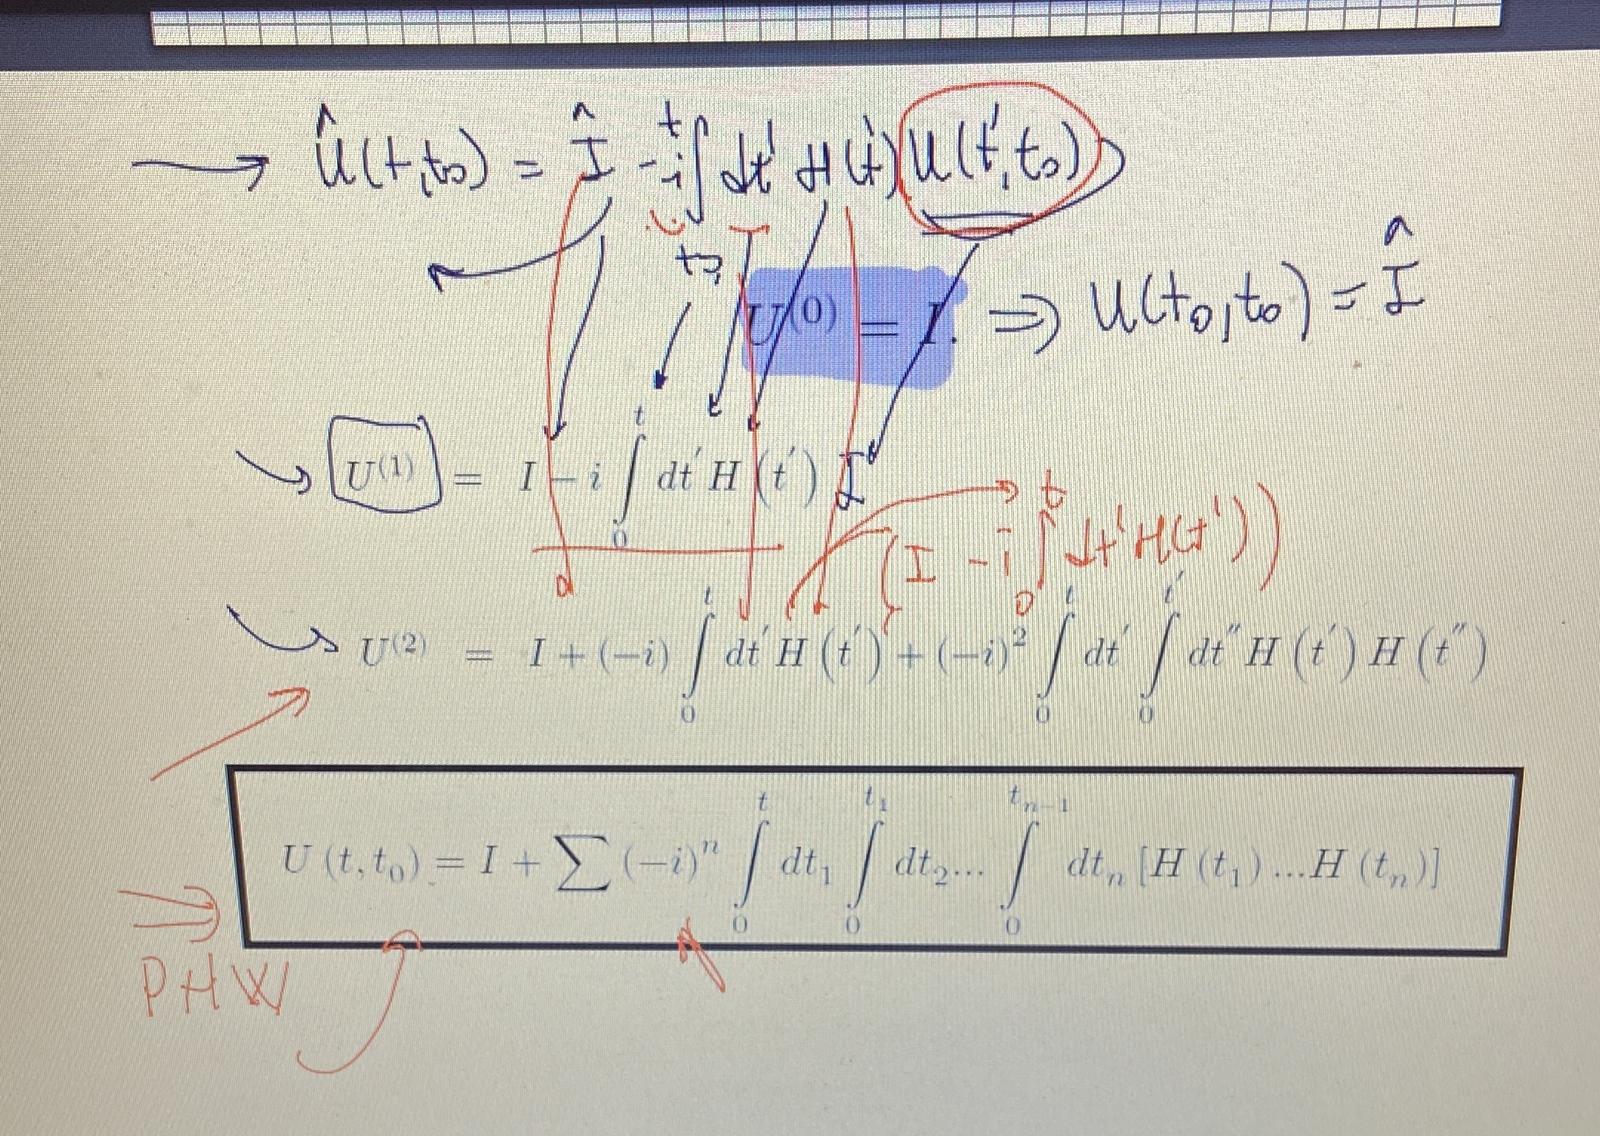 Û(t,t₀) = Î - i∫ dt' H(t') U(t',t₀)
t
U⁽⁰⁾ = I. ⇒ U(t₀,t₀) = Î
U⁽¹⁾ = I - i ∫₀ᵗ dt' H(t') I
(I - i ∫₀ᵗ dt' H(t'))
U⁽²⁾ = I + (-i) ∫₀ᵗ dt' H(t') + (-i)² ∫₀ᵗ dt' ∫₀ᵗ' dt'' H(t') H(t'')
U(t,t₀) = I + ∑(-i)ⁿ ∫₀ᵗ dt₁ ∫₀ᵗ₁ dt₂... ∫₀ᵗₙ₋₁ dtₙ [H(t₁)...H(tₙ)]
PHW